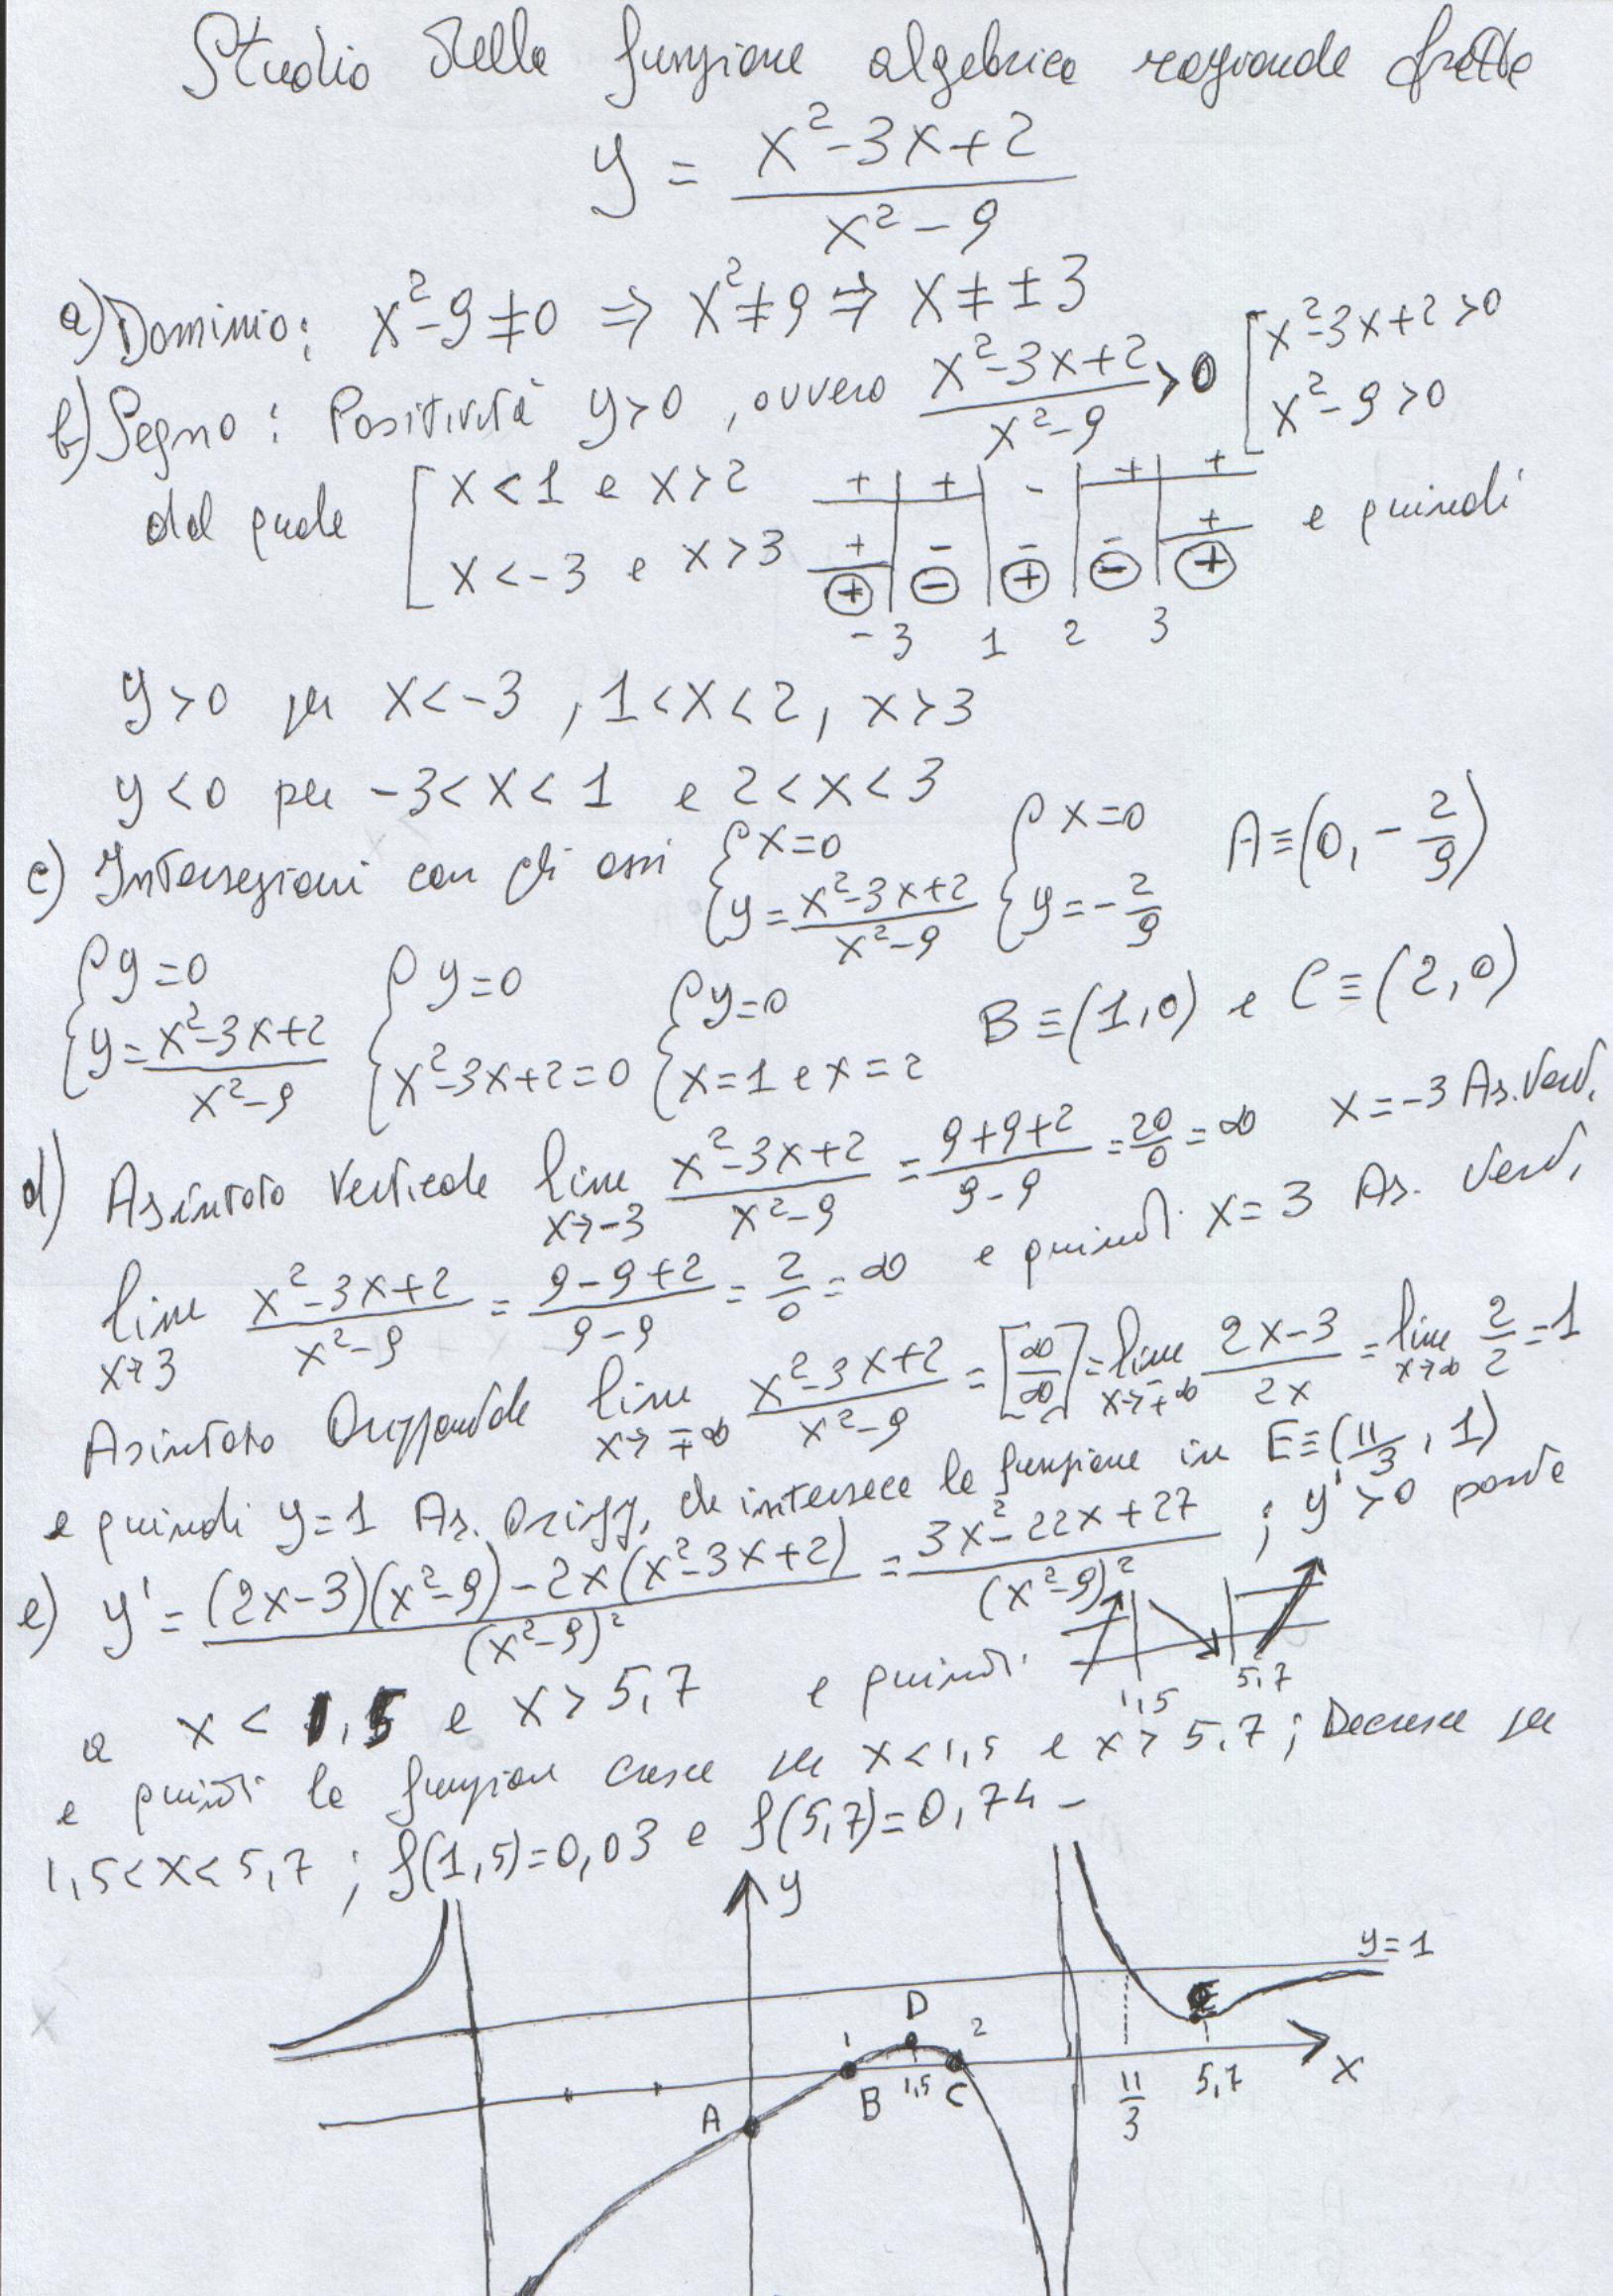 Studio della funzione algebrica razionale fratta
y = (x²-3x+2)/(x²-9)
a) Dominio: x²-9≠0 ⇒ x²≠9 ⇒ x≠±3
b) Segno: Positività y>0, ovvero (x²-3x+2)/(x²-9) >0 [x²-3x+2>0
x²-9>0
dal quale [x<1 e x>2 + + - + +
x<-3 e x>3 + - - - + e quindi
+ - + - +
-3 1 2 3
y>0 per x<-3, 1<x<2, x>3
y<0 per -3<x<1 e 2<x<3
c) Intersezioni con gli assi {x=0 y=(x²-3x+2)/(x²-9) {x=0 y=-2/9 A≡(0,-2/9)
{y=0 y=(x²-3x+2)/(x²-9) {y=0 x²-3x+2=0 {y=0 x=1 e x=2 B≡(1,0) e C≡(2,0)
d) Asintoto Verticale lim x→-3 (x²-3x+2)/(x²-9) = (9+9+2)/(9-9) = 20/0 = ∞ x=-3 As. Vert.
lim x→3 (x²-3x+2)/(x²-9) = (9-9+2)/(9-9) = 2/0 = ∞ e quindi x=3 As. Vert.
Asintoto Orizzontale lim x→∓∞ (x²-3x+2)/(x²-9) = [∞/∞] = lim x→∓∞ (2x-3)/2x = lim x→∞ 2/2 = 1
e quindi y=1 As. Orizz. che interseca la funzione in E≡(11/3, 1)
e) y' = ((2x-3)(x²-9)-2x(x²-3x+2))/(x²-9)² = (3x²-22x+27)/(x²-9)² ; y'>0 porta
a x<1,5 e x>5,7 e quindi 1,5 5,7
e quindi la funzione cresce per x<1,5 e x>5,7; Decresce per
1,5<x<5,7; f(1,5)=0,03 e f(5,7)=0,74-
y
y=1
D
1 2
A B 1,5 C 11/3 5,7 x